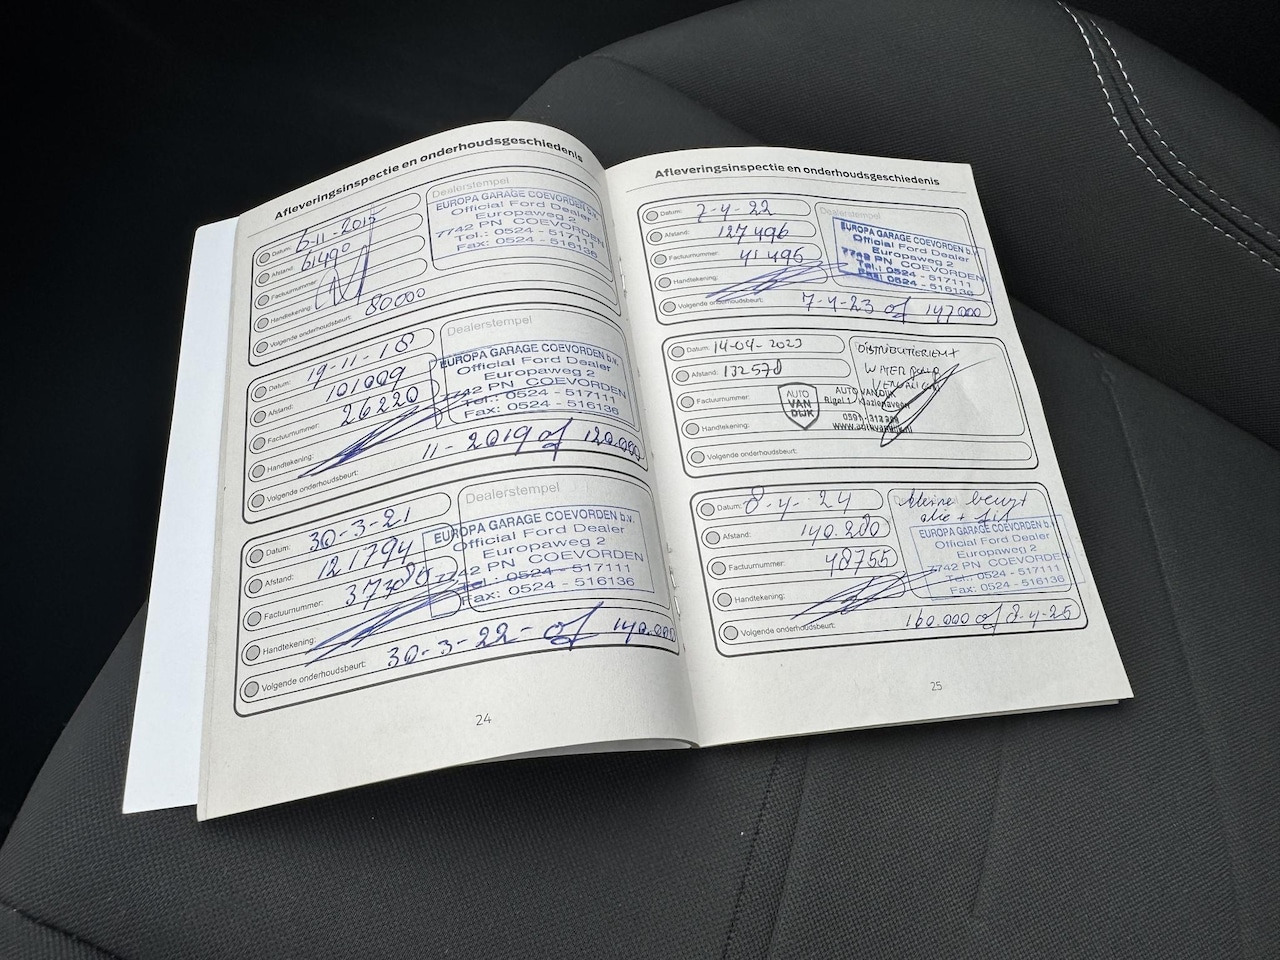 Afleveringsinspectie en onderhoudsgeschiedenis
Datum: 6-11-2015
Afstand: 61490
Factuurnummer:
Handtekening:
Volgende onderhoudsbeurt: 80000
Dealerstempel
EUROPA GARAGE COEVORDEN b.v.
Official Ford Dealer
Europaweg 2
7742 PN COEVORDEN
Tel.: 0524 - 517111
Fax: 0524 - 516136
Datum: 19-11-18
Afstand: 101009
Factuurnummer: 26220
Handtekening:
Volgende onderhoudsbeurt: 11-2019 of 120.000
Dealerstempel
EUROPA GARAGE COEVORDEN b.v.
Official Ford Dealer
Europaweg 2
7742 PN COEVORDEN
Tel.: 0524 - 517111
Fax: 0524 - 516136
Datum: 30-3-21
Afstand: 121794
Factuurnummer:
Handtekening:
Volgende onderhoudsbeurt: 30-3-22- of 140.000
Dealerstempel
EUROPA GARAGE COEVORDEN b.v.
Official Ford Dealer
Europaweg 2
7742 PN COEVORDEN
Tel.: 0524 - 517111
Fax: 0524 - 516136
24
Afleveringsinspectie en onderhoudsgeschiedenis
Datum: 7-4-22
Afstand: 127496
Factuurnummer: 41495
Handtekening:
Volgende onderhoudsbeurt: 7-4-23 of 147000
Dealerstempel
EUROPA GARAGE COEVORDEN b.v.
Official Ford Dealer
Europaweg 2
7742 PN COEVORDEN
Tel.: 0524 - 517111
Fax: 0524 - 516136
Datum: 14-04-2023
Afstand: 132578
Factuurnummer:
Handtekening:
Volgende onderhoudsbeurt:
DISTRIBUTIERIEM +
WATERPOMP
AUTO
VAN
DIJK
AUTO VAN DIJK
Rigel 1
0591 - 312
www.autovandijk.nl
Datum: 8-4-24
Afstand: 140.280
Factuurnummer: 48755
Handtekening:
Volgende onderhoudsbeurt: 160.000 of 8-4-25
kleine beurt
olie +
EUROPA GARAGE COEVORDEN b.v.
Official Ford Dealer
Europaweg 2
7742 PN COEVORDEN
Tel.: 0524 - 517111
Fax: 0524 - 516136
25